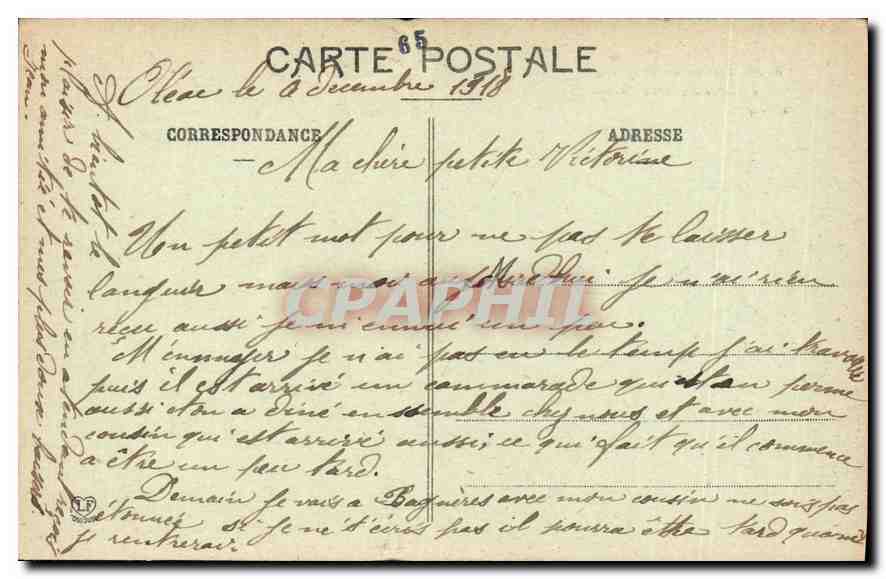 65
CARTE POSTALE
le decembre 1918
CORRESPONDANCE
ADRESSE
Ma chère petite Victorine
Un petit mot pour ne pas te laisser
languir mais moi aujourdhui je n'ai rien
reçu aussi je m'ennui un peu.
M'ennuyer je n'ai pas eu le temp j'ai travaillé
puis il est arrivé un commarade qui est en perme
aussi et on a diné ensemble chez nous et avec mon
cousin qui est arrivé aussi, ce qui fait qu'il commence
a être un peu tard.
Demain je vais a Bagnères avec mon cousin ne sois pas
étonnée si je ne t'écris pas il pourra être tard quand
je rentrerai.
A bientot le
plaisir de te revoir en attendant reçoi
mon amitié et mes plus doux baisers
Jean.
CPAPHIL
LF